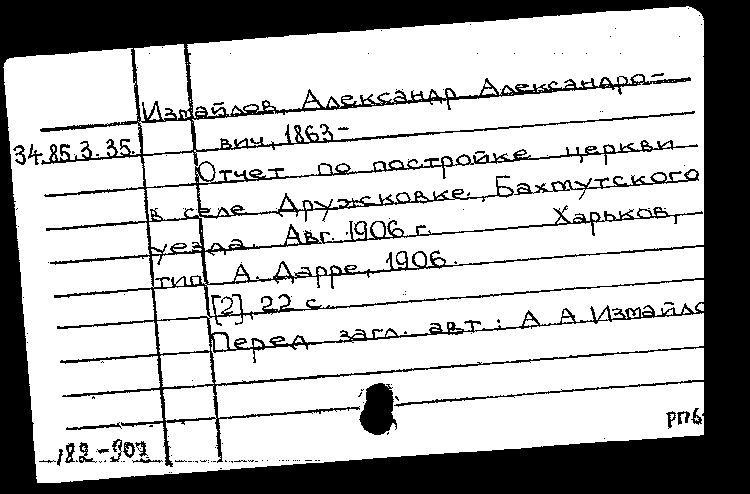 Измайлов, Александр Александро-
34.85.3.35. вич, 1863-
Отчет по постройке церкви
в селе Дружковке, Бахмутского
уезда. Авг. 1906 г. Харьков,
тип. А. Дарре, 1906.
[2], 22 с.
Перед загл. авт.: А. А. Измайло
182-902